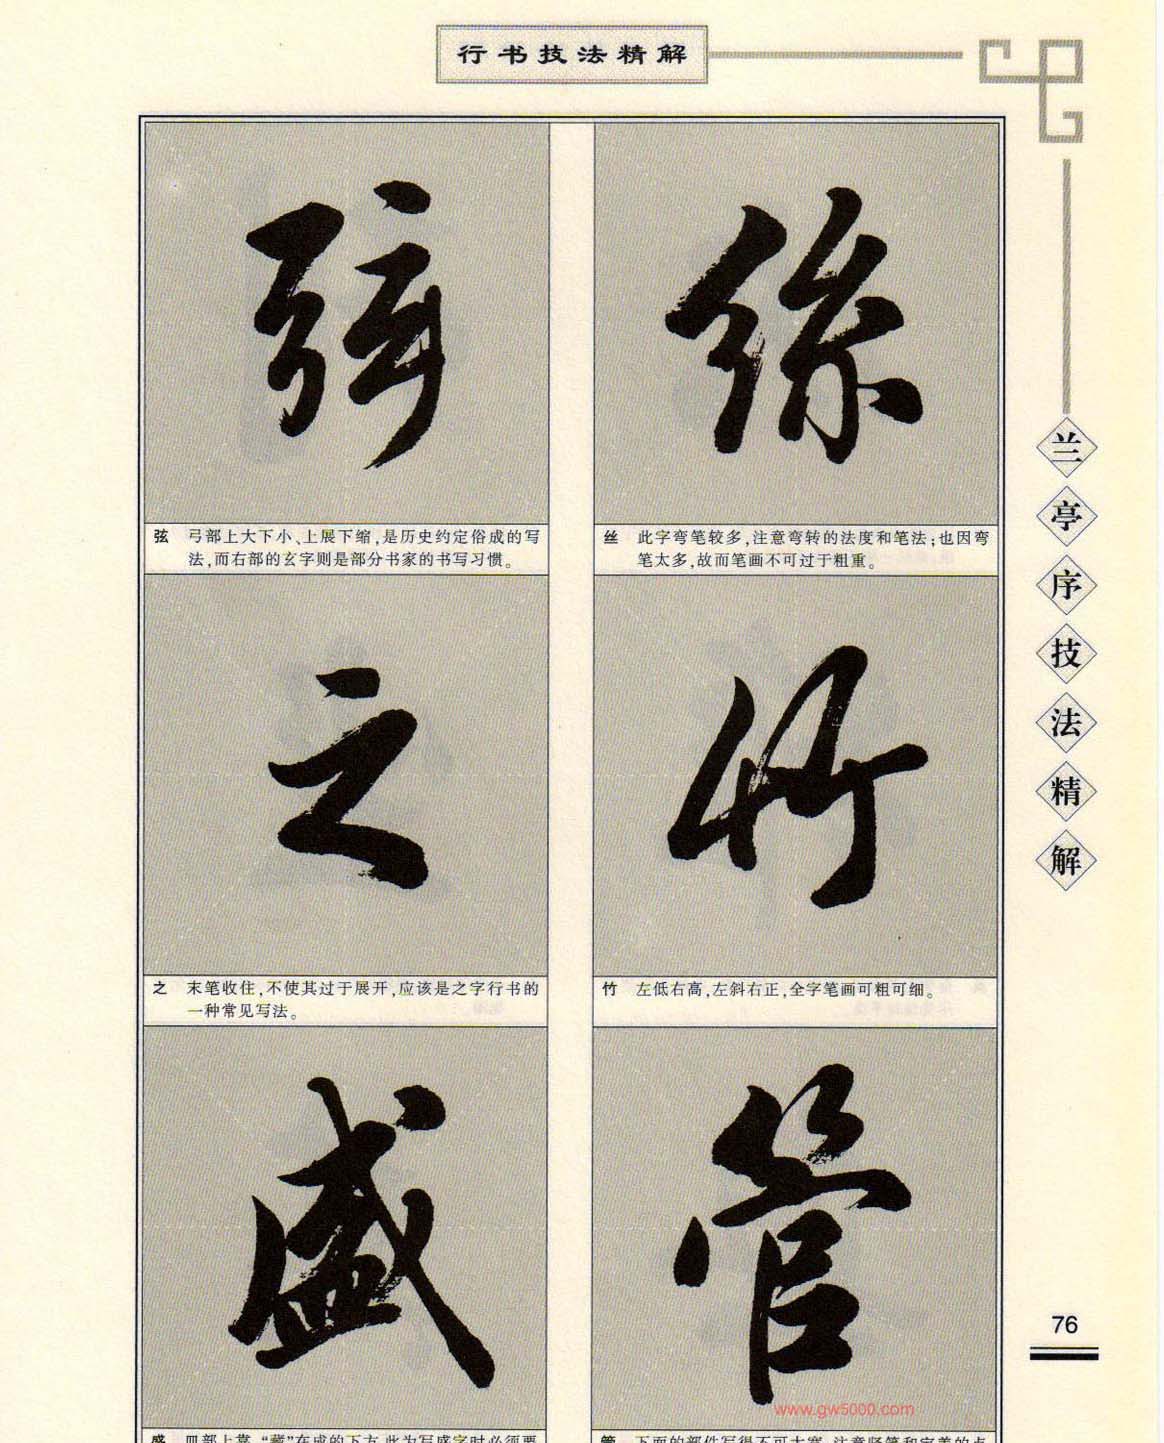 行书技法精解
兰亭序技法精解
絲
丝 此字弯笔较多,注意弯转的法度和笔法;也因弯
笔太多,故而笔画不可过于粗重。
竹
竹 左低右高,左斜右正,全字笔画可粗可细。
管
管 下面的部件写得不可太窄,注意竖笔和宝盖的点
弦
弦 弓部上大下小、上展下缩,是历史约定俗成的写
法,而右部的玄字则是部分书家的书写习惯。
之
之 末笔收住,不使其过于展开,应该是之字行书的
一种常见写法。
盛
盛 皿部上靠,“藏”在成的下方,此为写盛字时必须要
76
www.gw5000.com